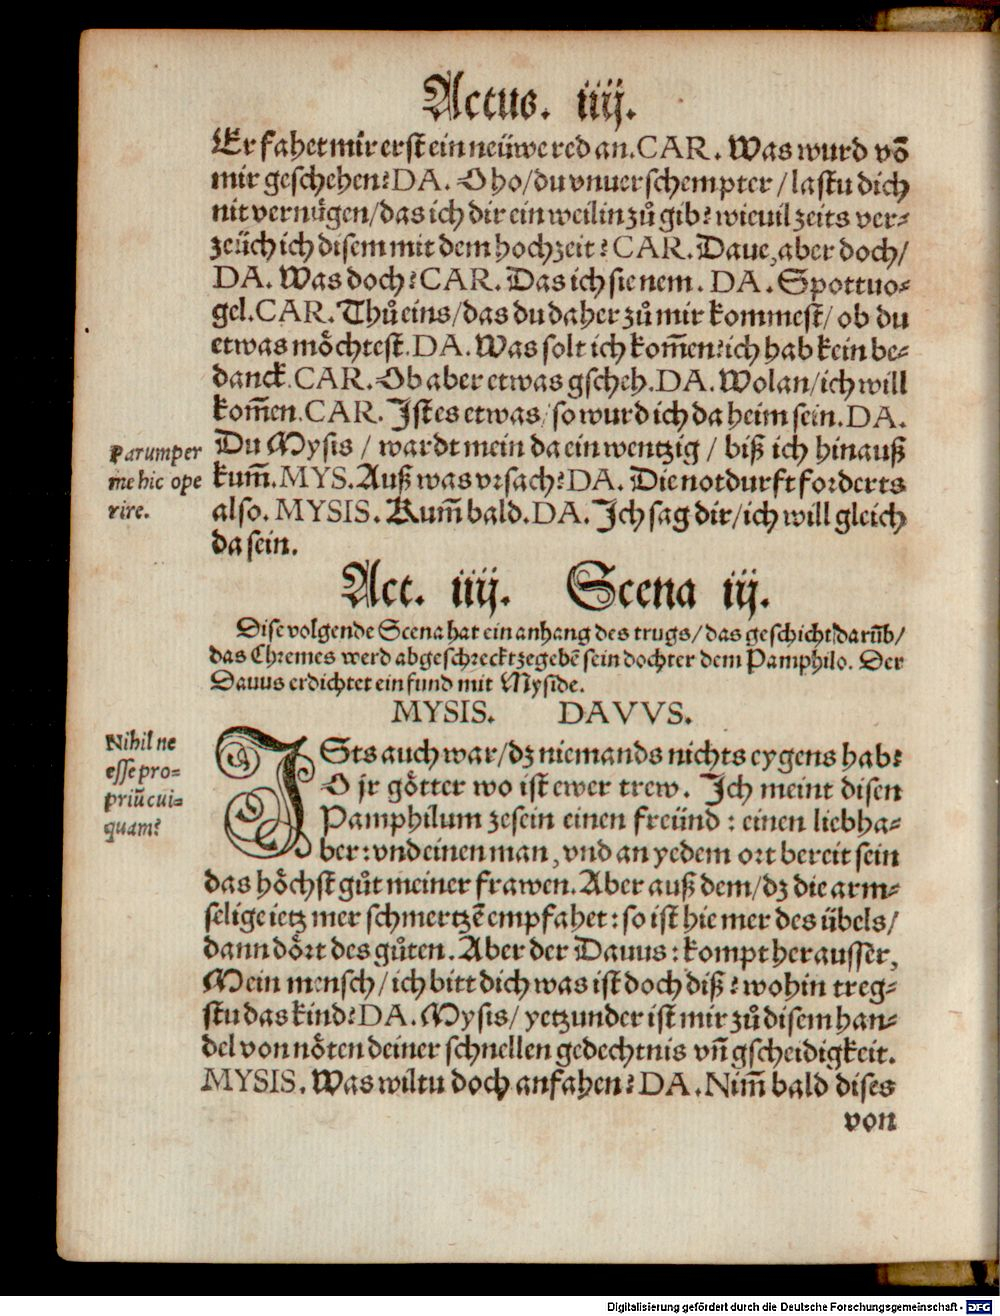 Actus. iiij.
Er fahet mir erst ein neüwe red an. CAR. Was wurd võ
mir geschehen? DA. O ho/ du vnuerschempter/ lastu dich
nit vernügen/ das ich dir ein weilin zů gib? wieuil zeits ver-
zeüch ich disem mit dem hochzeit? CAR. Daue, aber doch/
DA. Was doch? CAR. Das ich sie nem. DA. Spottuo-
gel. CAR. Thů eins/ das du daher zů mir kommest/ ob du
etwas möchtest. DA. Was solt ich kom̃en? ich hab kein be-
danck. CAR. Ob aber etwas gscheh. DA. Wolan/ ich will
kom̃en. CAR. Ist es etwas/ so wurd ich da heim sein. DA.
Du Mysis / wardt mein da ein wentzig / biß ich hinauß
Parumper
kum̃. MYS. Auß was vrsach? DA. Die notdurft forderts
me hic ope
also. MYSIS. Kum̃ bald. DA. Ich sag dir/ ich will gleich
rire.
da sein.
Act. iiij. Scena iij.
Dise volgende Scena hat ein anhang des trugs/ das geschicht darũb/
das Chremes werd abgeschreckt zegebẽ sein dochter dem Pamphilo. Der
Dauus erdichtet ein fund mit Myside.
MYSIS. DAVVS.
Nihil ne
esse pro-
priũ cui-
quam?
ISts auch war/ dz niemands nichts eygens hab?
O jr götter wo ist ewer trew. Ich meint disen
Pamphilum zesein einen freünd : einen liebha-
ber: vnd einen man, vnd an yedem ort bereit sein
das höchst gůt meiner frawen. Aber auß dem/ dz die arm-
selige ietz mer schmertzẽ empfahet: so ist hie mer des übels/
dann dört des gůten. Aber der Dauus: kompt herausser,
Mein mensch/ ich bitt dich was ist doch diß? wohin treg-
stu das kind? DA. Mysis/ yetzunder ist mir zů disem han-
del von nöten deiner schnellen gedechtnis vñ gscheidigkeit.
MYSIS. Was wiltu doch anfahen? DA. Nim̃ bald dises
von
Digitalisierung gefördert durch die Deutsche Forschungsgemeinschaft - DFG